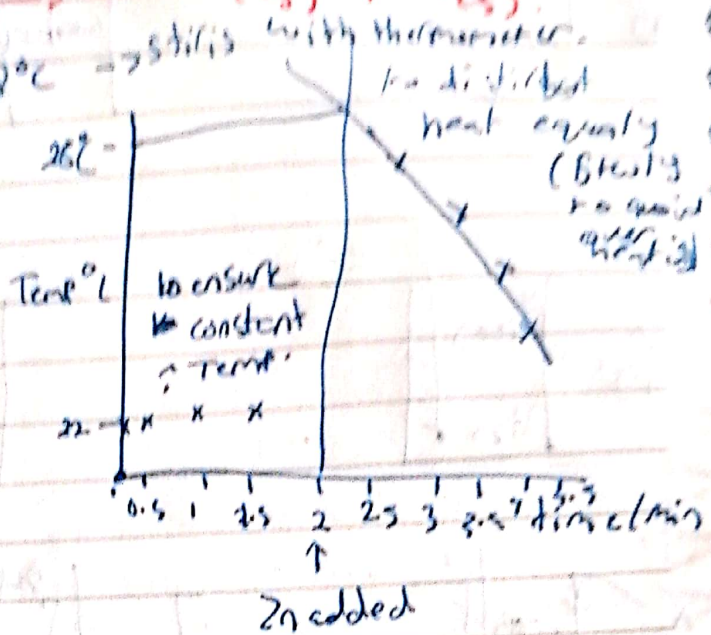 °C → stiris with thermometer.
to distribut
heat equaly
(
to avoid
28°C
Temp °C
to ensure
constant
Temp.
22
0.5 1 1.5 2 2.5 3 3.5 4 time/min
↑
Zn added